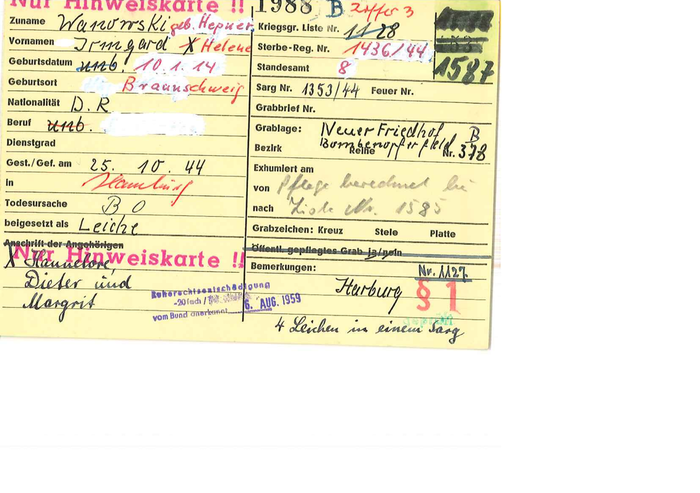 Nur Hinweiskarte !!
1988 B Ziffer 3
Zuname Wanowski geb. Hepner
Vornamen Irmgard X Helene
Geburtsdatum unb! 10.1.14
Geburtsort Braunschweig
Nationalität D.R
Beruf unb.
Dienstgrad
Gest./Gef. am 25. 10. 44
in Hamburg
Todesursache B O
beigesetzt als Leiche
Anschrift der Angehörigen
Nur Hinweiskarte !!
X Hannelore,
Dieter und
Margrit
Ruherechtsentschädigung
-20fach /
vom Bund anerkannt 6. AUG. 1959
Kriegsgr. Liste Nr. 11/28
Sterbe-Reg. Nr. 1436/44
1587
Standesamt 8
Sarg Nr. 1353/44 Feuer Nr.
Grabbrief Nr.
Grablage: Neuer Friedhof B
Bezirk Bombenopferfeld Reihe Nr. 378
Exhumiert am
von Pflege berechnet bei
nach Liste Nr. 1585
Grabzeichen: Kreuz Stele Platte
Öffentl. gepflegtes Grab ja/nein
Bemerkungen: Nr. 1127
Harburg § 1
4 Leichen in einem Sarg